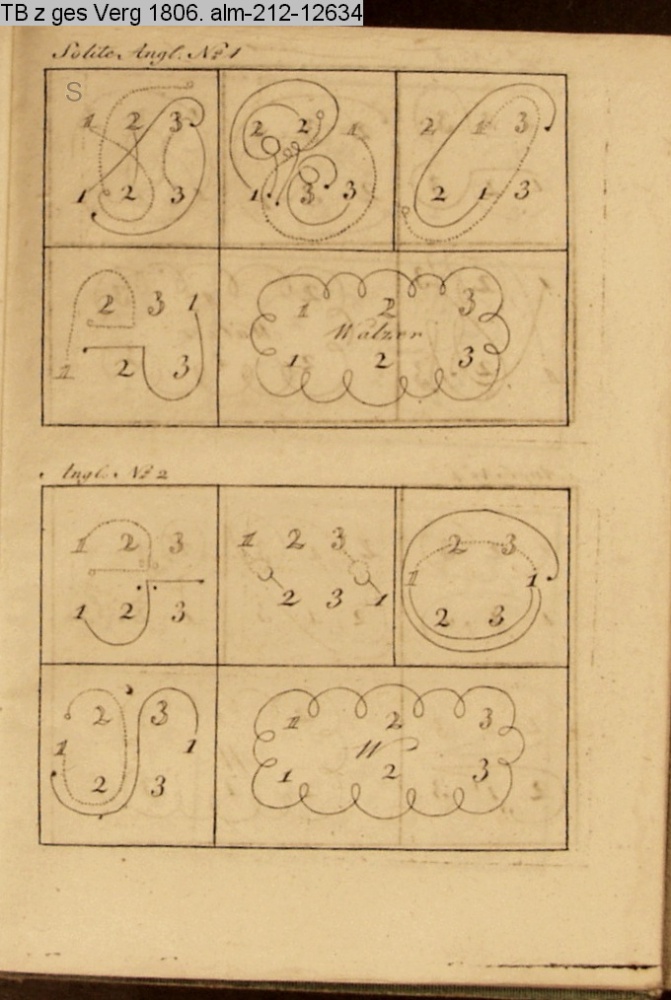 TB z ges Verg 1806. alm-212-12634
Solite Angl. № 1
S
1 2 3
1 2 3
2 2 1
1 3 3
2 1 3
2 1 3
2 3 1
1 2 3
1 2 3
Walzer
1 2 3
Angl. № 2
1 2 3
1 2 3
1 2 3
2 3 1
2 3
1 1
2 3
2 3
1 1
2 3
1 2 3
W
1 2 3